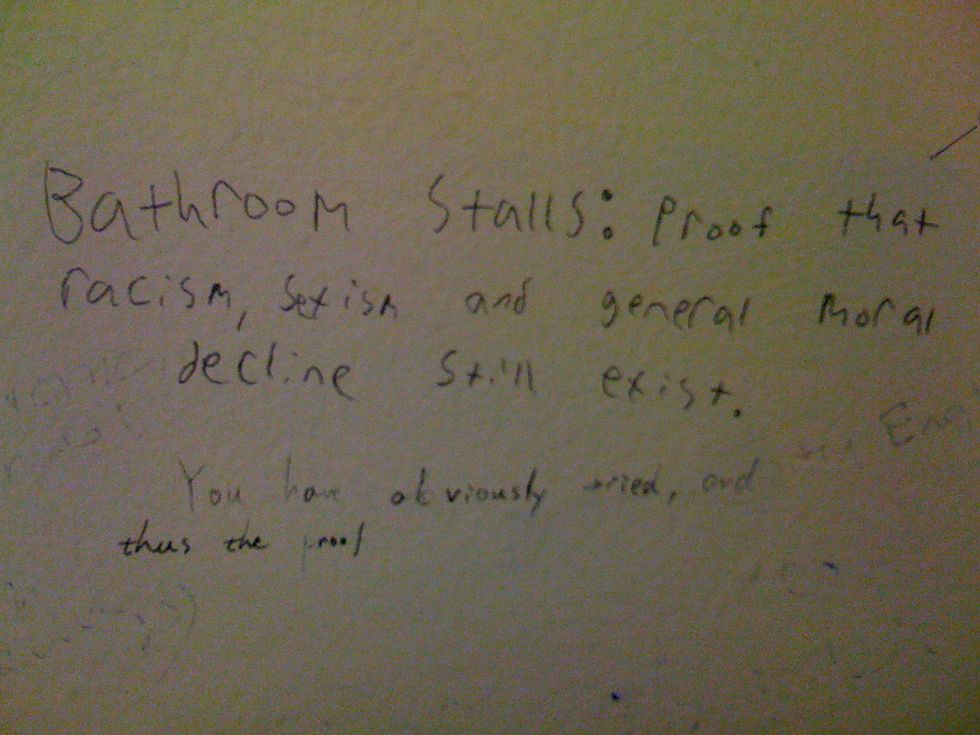 Bathroom Stalls: Proof that
racism, Sexism and general Moral
decline still exist.
You have obviously tried, and
thus the proof